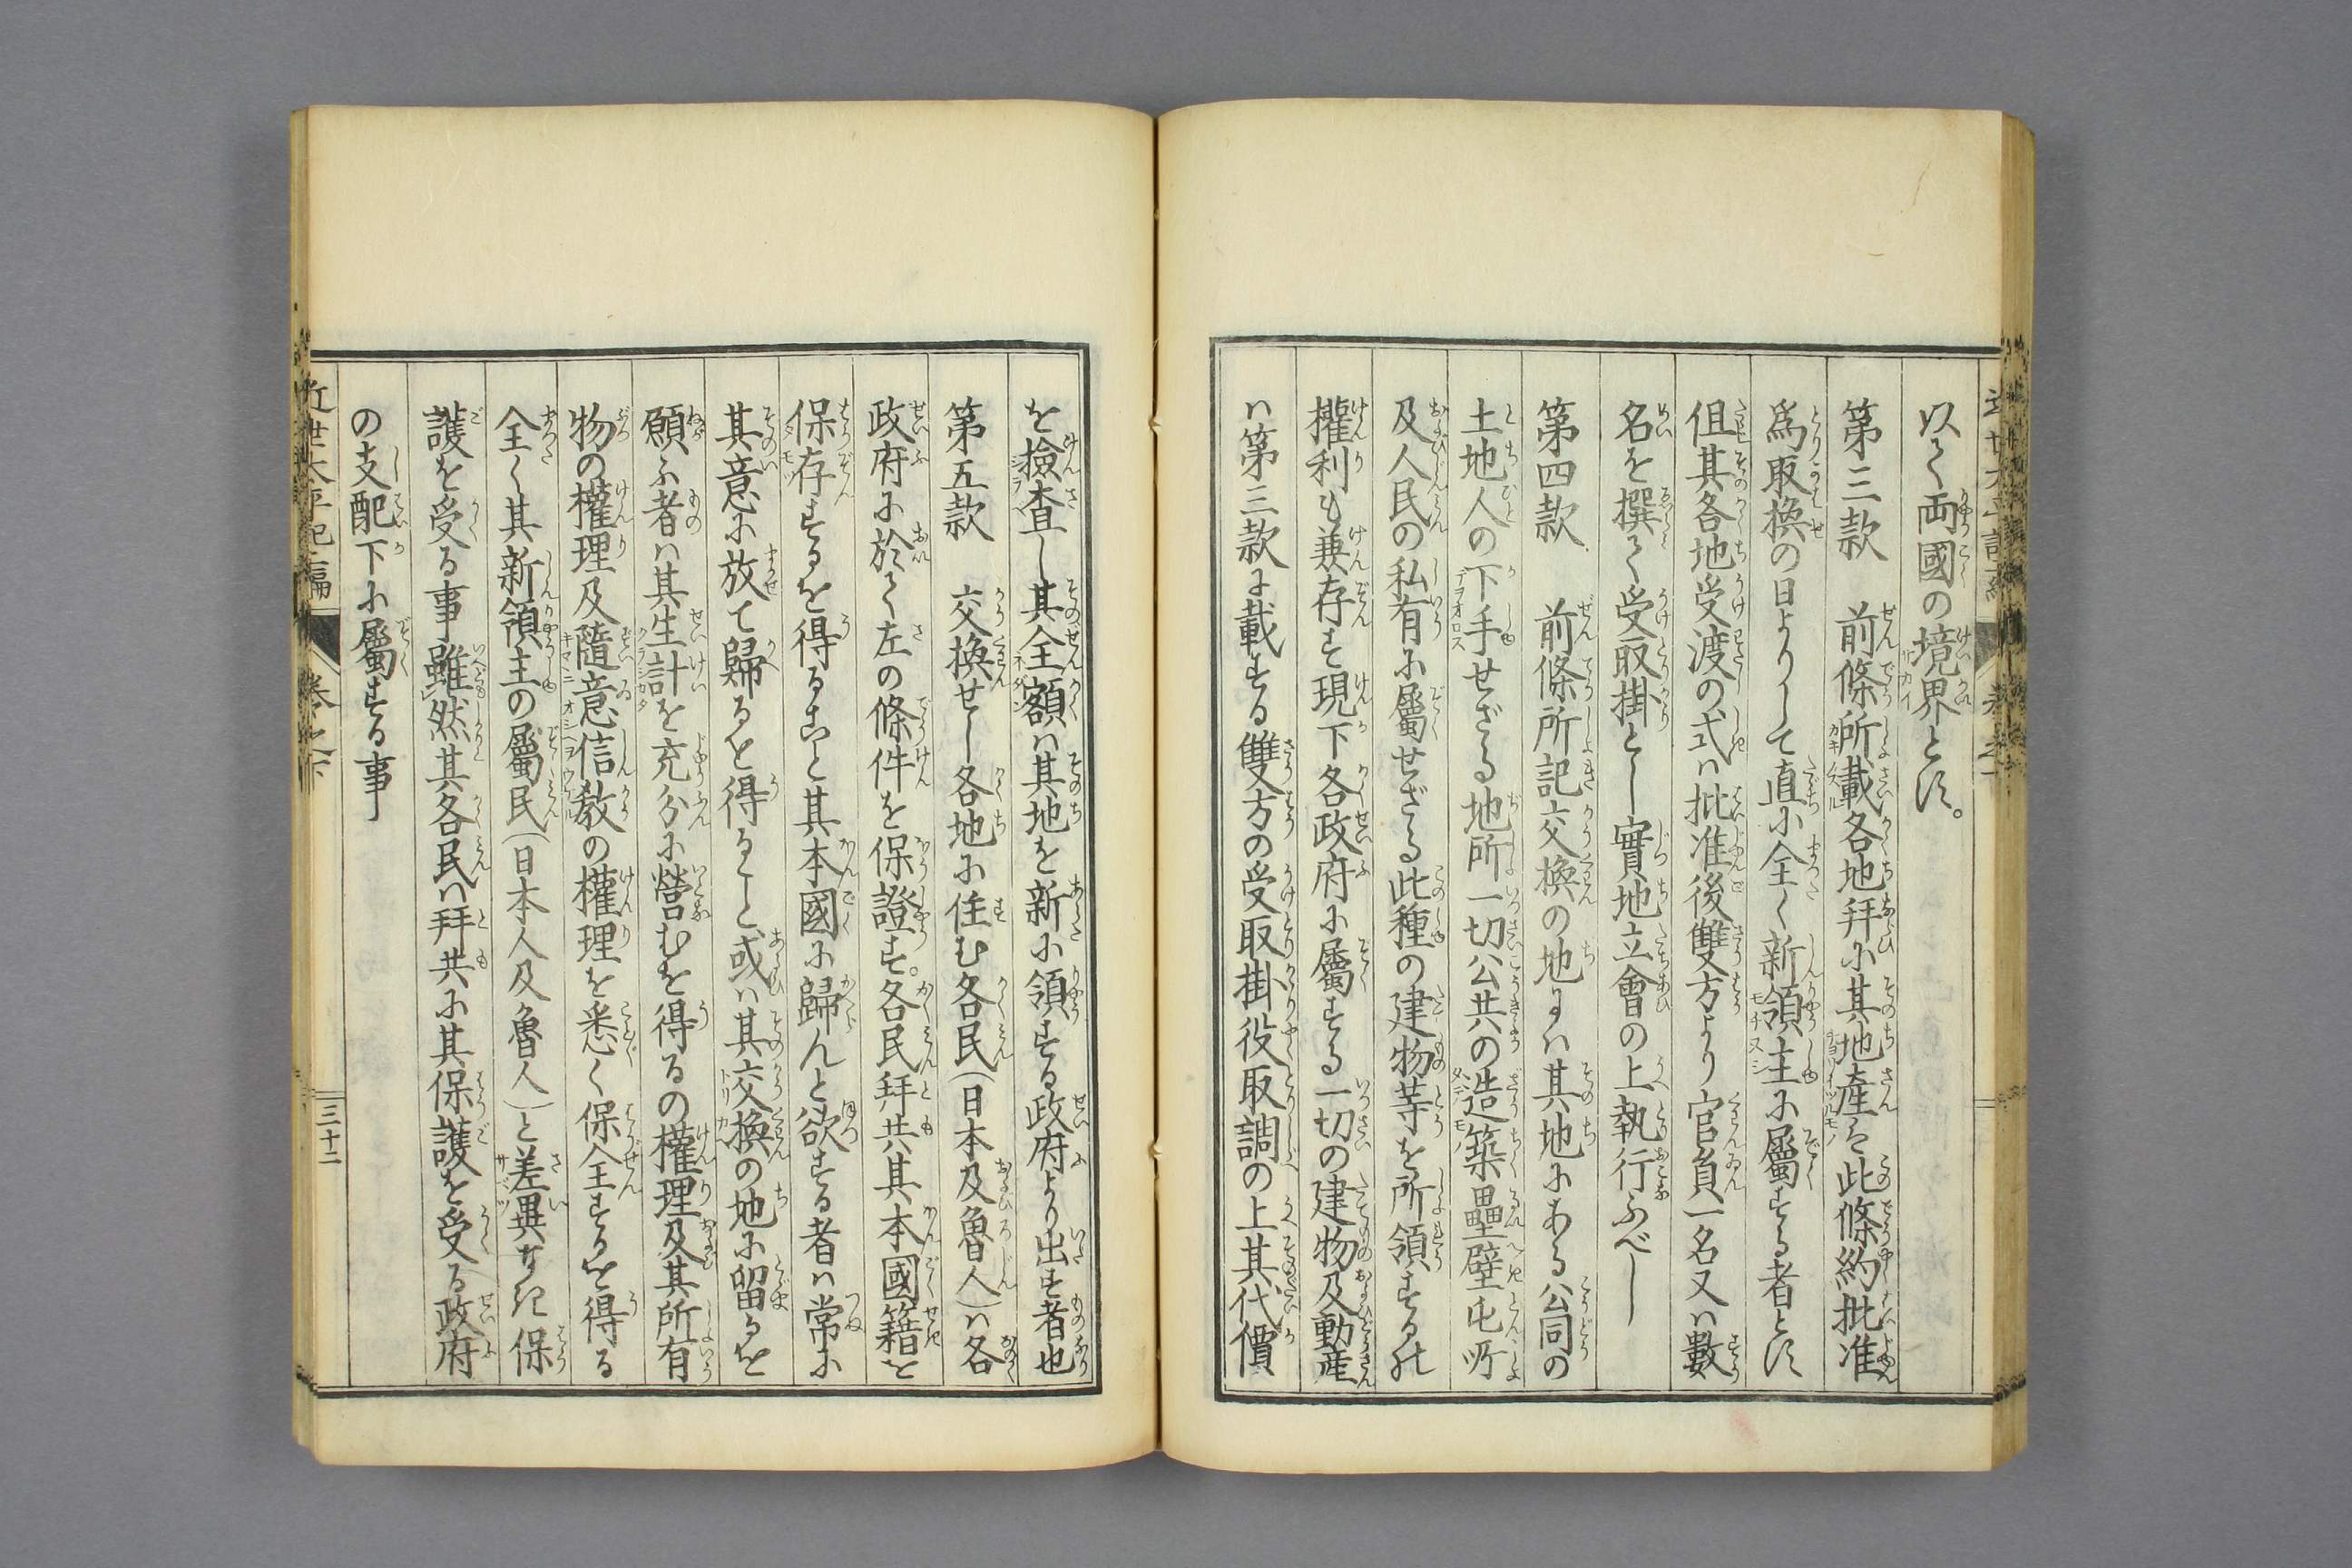 以て両國の境界とす。
第三款　前條所載各地拜に其地産は此條約批准
爲取換の日よりして直に全く新領主に屬する者とす
但其各地受渡の式ハ批准後雙方より官員一名又ハ數
名を撰て受取掛とし實地立會の上執行ふべし
第四款　前條所記交換の地にハ其地にある公同の
土地人の下手せざる地所一切公共の造築壘壁屯所
及人民の私有に屬せざる此種の建物等を所領するの
權利も兼存す現下各政府に屬する一切の建物及動産
ハ第三款に載する雙方の受取掛役取調の上其代價
を撿査し其全額ハ其地を新に領する政府より出す者也
第五款　交換せし各地に住む各民(日本及魯人)ハ各
政府に於て左の條件を保證す。各民拜共其本國籍を
保存するを得ること其本國に歸んと欲する者ハ常に
其意に放て歸るを得ること或ハ其交換の地に留るを
願ふ者ハ其生計を充分に營むを得るの權理及其所有
物の權理及隨意信教の權理を悉く保全するを得る
全く其新領主の屬民(日本人及魯人)と差異なき保
護を受る事雖然其各民ハ拜共に其保護を受る政府
の支配下に屬する事
近世太平記二編　卷之下　三十二